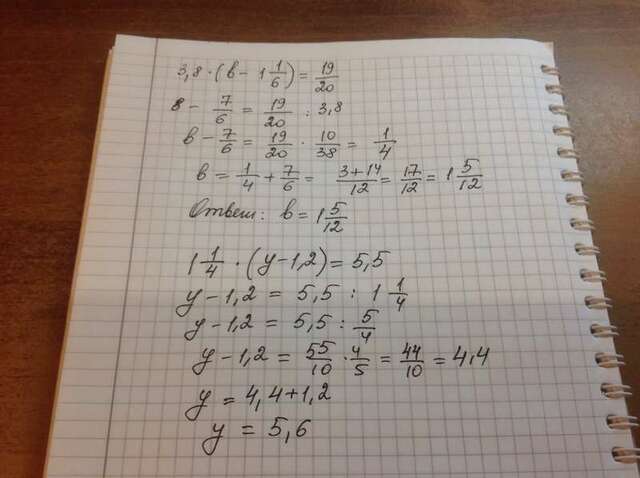 3,8 · (в - 1 1/6) = 19/20
в - 7/6 = 19/20 : 3,8
в - 7/6 = 19/20 · 10/38 = 1/4
в = 1/4 + 7/6 = 3+14/12 = 17/12 = 1 5/12
Ответ: в = 1 5/12
1 1/4 · (y - 1,2) = 5,5
y - 1,2 = 5,5 : 1 1/4
y - 1,2 = 5,5 : 5/4
y - 1,2 = 55/10 · 4/5 = 44/10 = 4,4
y = 4,4 + 1,2
y = 5,6